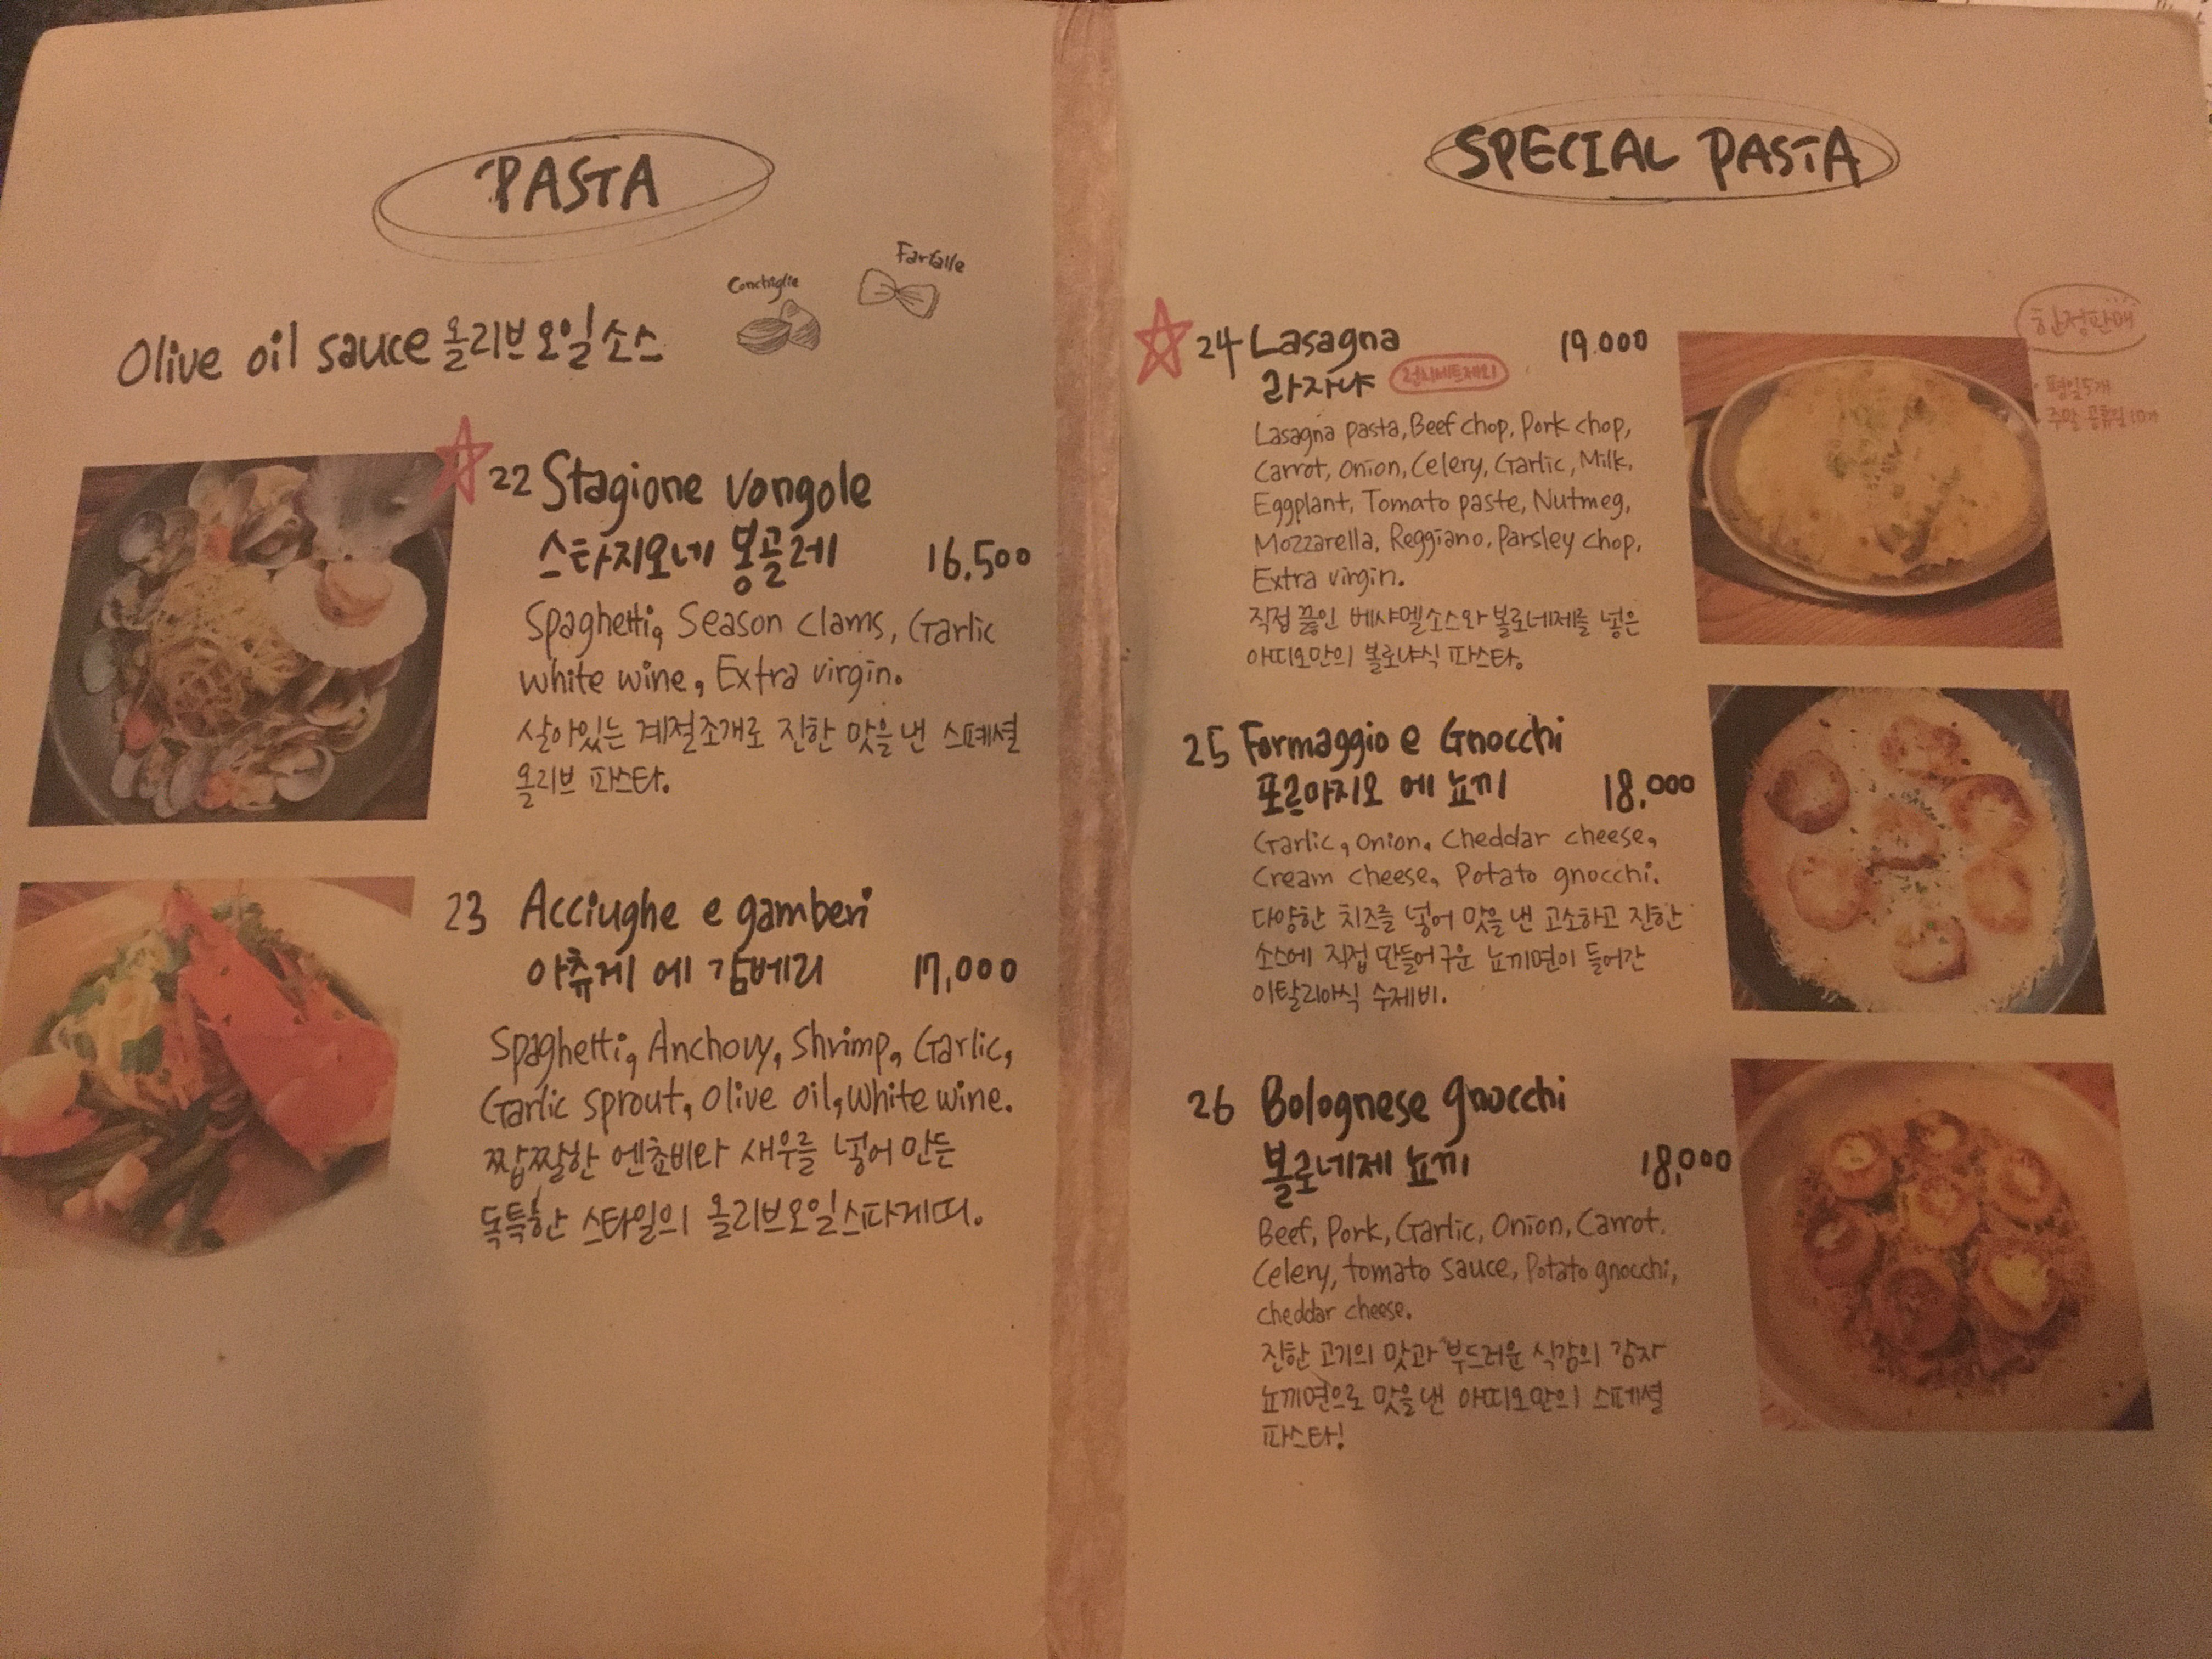 PASTA
Conchiglie
Farfalle
Olive oil sauce 올리브오일소스
22 Stagione vongole
스타지오네 봉골레 16,500
Spaghetti, Season clams, Garlic
white wine, Extra virgin.
살아있는 계절조개로 진한 맛을 낸 스페셜
올리브 파스타.
23 Acciughe e gamberi
아츄게 에 감베리 17,000
Spaghetti, Anchovy, Shrimp, Garlic,
Garlic sprout, Olive oil, White wine.
짭짤한 엔쵸비와 새우를 넣어 만든
독특한 스타일의 올리브오일스파게띠.
SPECIAL PASTA
24 Lasagna 19.000
라자냐 런치세트제외
한정판매
· 평일 5개
· 주말 공휴일 10개
Lasagna pasta, Beef chop, Pork chop,
Carrot, Onion, Celery, Garlic, Milk,
Eggplant, Tomato paste, Nutmeg,
Mozzarella, Reggiano, Parsley chop,
Extra virgin.
직접 끓인 베샤멜소스와 볼로네제를 넣은
아띠오만의 볼로냐식 파스타.
25 Formaggio e Gnocchi
포르마지오 에 뇨끼 18,000
Garlic, Onion, Cheddar cheese,
Cream cheese, Potato gnocchi.
다양한 치즈를 넣어 맛을 낸 고소하고 진한
소스에 직접 만들어 구운 뇨끼면이 들어간
이탈리아식 수제비.
26 Bolognese gnocchi
볼로네제 뇨끼 18,000
Beef, Pork, Garlic, Onion, Carrot.
Celery, tomato sauce, Potato gnocchi,
cheddar cheese.
진한 고기의 맛과 부드러운 식감의 감자
뇨끼면으로 맛을 낸 아띠오만의 스페셜
파스타!